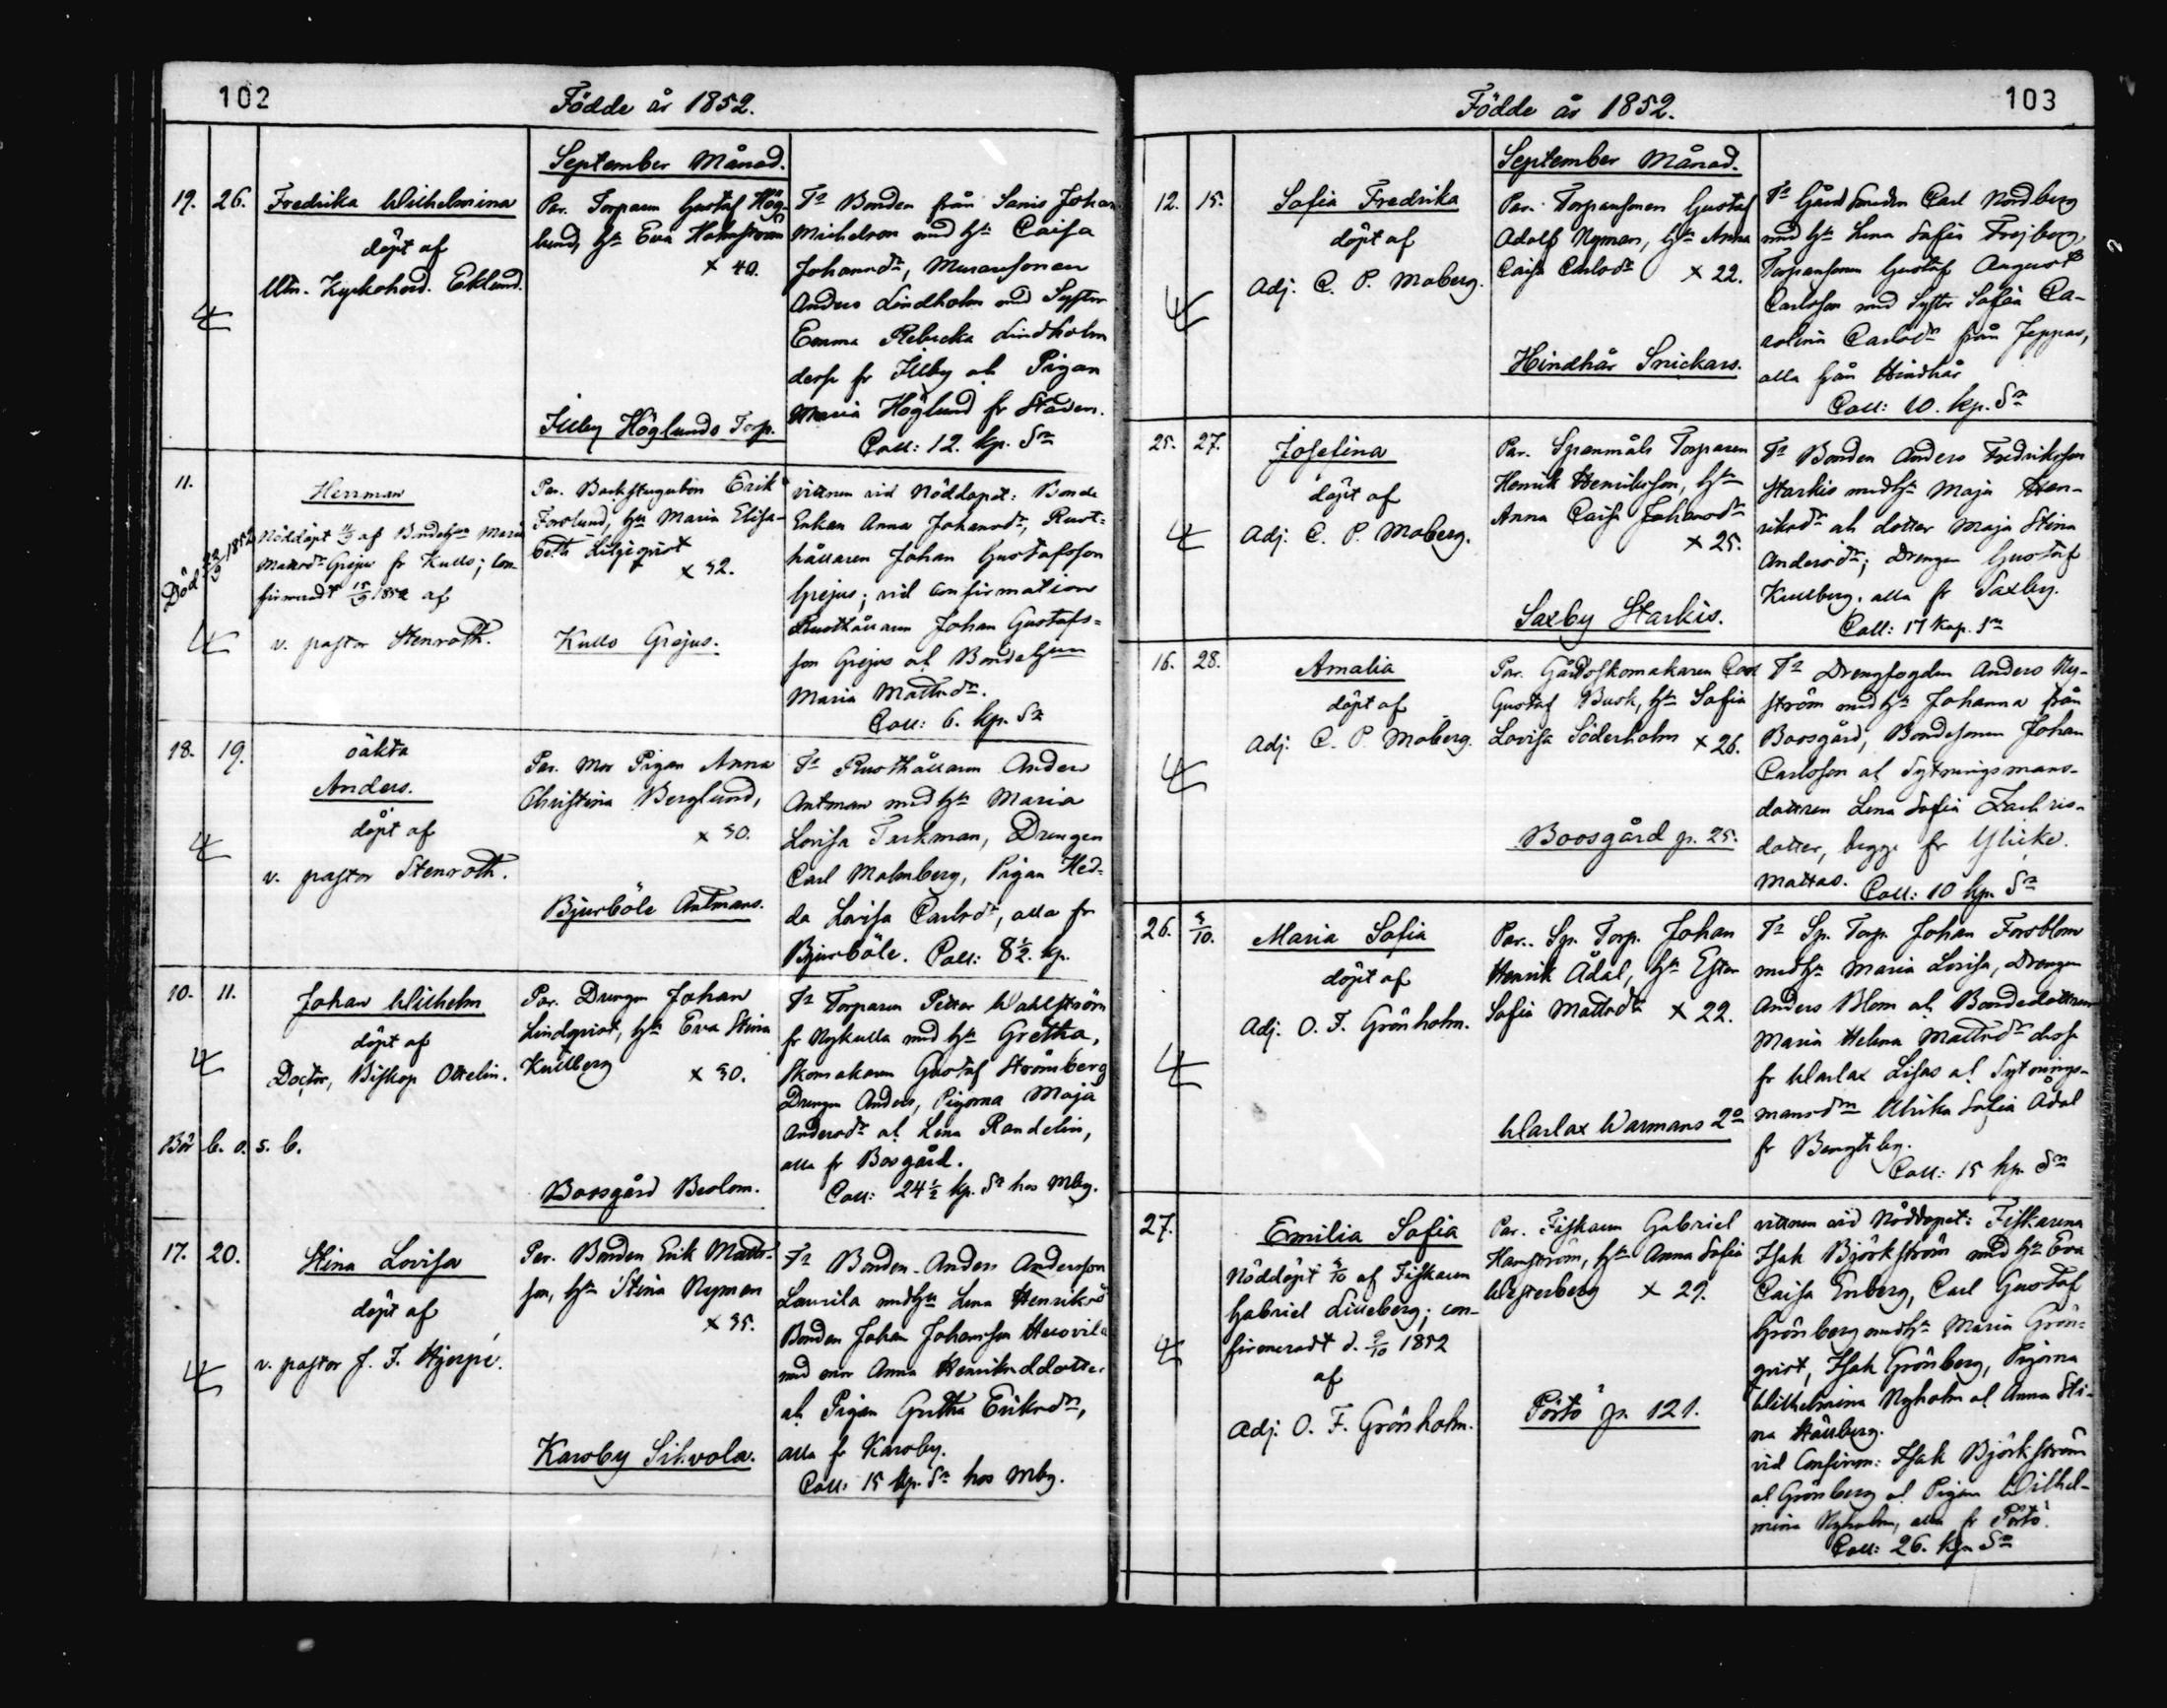 102
Födde år 1852.
September Månad.
19. 26. Fredrika Wilhelmina
döpt af
Kyrkoherd. Eklund.
Par. Torparen Gustaf Hög-
lund, hu Eva Holmström
× 40.
Illby Höglunds Torp.
Fr Bonden från Sanis Johan
Michelson med hu Caisa
Johansdr, Muraresonen
Anders Lindholm med Syster
Emma Rebecka Lindholm
fr Illby ah Pigan
Maria Höglund fr Staden.
Coll: 12. kp. Sr
11.
Död 22/9 1852
Herrman
Nöddöpt 11/9 af Bondehun Maria
Mattsdr Grejus fr Kullo; con-
firmeradt 15/9 1852 af
v. pastor Stenroth.
Par. Backstugubon Erik
Forslund, hu Maria Elisa-
beth Liljeqvist
× 32.
Kullo Grejus.
vittnen vid Nöddopet: Bonde
Enkan Anna Johansdr, Rust-
hållaren Johan Gustafsson
Grejus; vid confirmation
Rusthållaren Johan Gustafs-
son Grejus ah Bondehun
Maria Mattsdr.
Coll: 6. kp. Sr
18. 19. oäkta
Anders.
döpt af
v. pastor Stenroth.
Par. Mor Pigan Anna
Christina Berglund,
× 30.
Bjurböle Antmans.
Fr Rusthållaren Anders
Antman med hu Maria
Lovisa Terkman, Drengen
Carl Malmberg, Pigan Hed-
da Lovisa Carlsdr, alla fr
Bjurböle. Coll: 8½. kp.
10. 11. Johan Wilhelm
döpt af
Doctor, Biskop Ottelin.
b. o. s. b.
Par. Drengen Johan
Lindqvist, hu Eva Stina
Kullberg × 30.
Boosgård Beslom.
Fr Torparen Petter Wahlström
fr Nykulla med hu Gretha,
Skomakaren Gustaf Strömberg
Drengen Anders, Pigorna Maja
Andersdr ah Lena Randelin,
alla fr Bosgård.
Coll: 24½ kp. Sr hos Mbg.
17. 20. Stina Lovisa
döpt af
v. pastor J. F. Hjerpe.
Par. Bonden Erik Matts-
son, hu Stina Nyman
× 35.
Karsby Silvola.
Fr Bonden Anders Andersson
Laurila med hu Lena Henriksdr
Bonden Johan Johansson
med mor Anna Henriksdotter
ah Pigan Gretha Eriksdr,
alla fr Karsby.
Coll: 15 kp. Sr hos Mbg.
103
Födde år 1852.
September Månad.
12. 15. Sofia Fredrika
döpt af
Adj. C. P. Moberg.
Par. Torparesonen Gustaf
Adolf Nyman, hu Anna
Caisa Carlsdr × 22.
Hindhår Snickars.
Fr Carl Nordberg
med hu Lena Sofia Frejberg,
Torparesonen Gustaf August
Carlsson med Syster Sofia Ca-
rolina Carlsdr från Jeppas,
alla från Hindhår
Coll: 10. kp. Sr
25. 27. Josefina
döpt af
Adj. C. P. Moberg.
Par. Spanmåls Torparen
Henrik Henriksson, hu
Anna Caisa Johansdr
× 25.
Saxby Starkis.
Fr Bonden Anders Fredriksson
Starkis med hu Maja Hen-
riksdr ah dotter Maja Stina
Andersdr; Drengen Gustaf
Kullberg. alla fr Saxby.
Coll: 17 kap. Sr
16. 28. Amalia
döpt af
Adj. C. P. Moberg.
Par. Gårdsskomakaren Carl
Gustaf Busk, hu Sofia
Lovisa Söderholm × 26.
Boosgård p. 25.
Fr Drengfogden Anders Ny-
ström med hu Johanna från
Boosgård, Bondesonen Johan
Carlsson ah Sytningsmans-
dottren Lena Sofia Zachris-
dotter, begge fr Ylike
Mattas. Coll: 10 kp. Sr
26. 3/10. Maria Sofia
döpt af
Adj. O. F. Grönholm.
Par. Sp. Torp. Johan
Henrik Ådal, hu Ester
Sofia Mattsdr × 22.
Warlax Warmans 2o
Fr Sp. Torp. Johan Forsblom
med hu Maria Lovisa, Drengen
Anders Blom ah Bondedottren
Maria Helena Mattsdr dessa
fr Warlax Lisas ah Sytnings-
mansdrn Ulrika Sofia Ådal
fr Bengtsby.
Coll: 15 kp. Sr
27. Emilia Sofia
Nöddöpt 3/10 af Fiskaren
Gabriel Lilleberg; con-
firmeradt d. 9/10 1852
af
Adj. O. F. Grönholm.
Par. Fiskaren Gabriel
Hamström, hu Anna Sofia
Westerberg × 29.
Pörtö p. 121.
vittnen vid Nöddopet: Fiskarena
Isak Björkström med hu Eva
Caisa Enberg, Carl Gustaf
Grönberg med hu Maria Grön-
qvist, Isak Grönberg, Pigorna
Wilhelmina Nyholm ah Anna Sti-
na Hällberg.
vid Confirm: Isak Björkström
ah Grönberg ah Pigan Wilhel-
mina Nyholm, alla fr Pörtö.
Coll: 26. kp. Sr